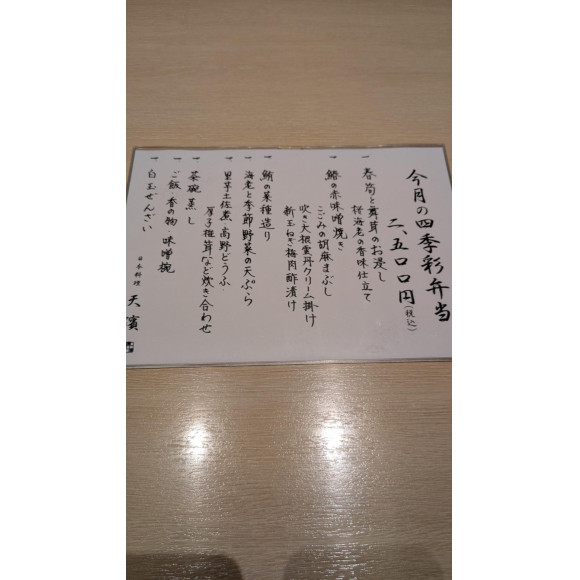 今月の四季彩弁当
二、五〇〇円(税込)
一 春筍と舞茸のお浸し
桜海老の香味仕立て
一 鰆の赤味噌焼き
こごみの胡麻まぶし
吹き大根雲丹クリーム掛け
新玉ねぎ梅肉酢漬け
一 鮪の菜種造り
一 海老と季節野菜の天ぷら
一 里芋土佐煮 高野どうふ
厚子椎茸など炊き合わせ
一 茶碗蒸し
一 ご飯・香の物 味噌椀
一 白玉ぜんざい
日本料理 天賓